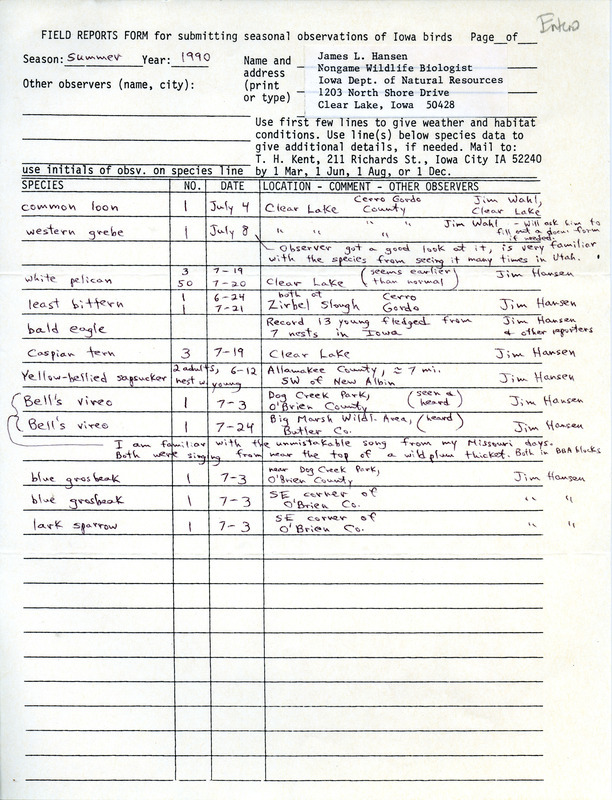 Enter
FIELD REPORTS FORM for submitting seasonal observations of Iowa birds Page__of__
Season: Summer Year: 1990
Name and address (print or type)
James L. Hansen
Nongame Wildlife Biologist
Iowa Dept. of Natural Resources
1203 North Shore Drive
Clear Lake, Iowa 50428
Other observers (name, city):
Use first few lines to give weather and habitat
conditions. Use line(s) below species data to
give additional details, if needed. Mail to:
T. H. Kent, 211 Richards St., Iowa City IA 52240
use initials of obsv. on species line by 1 Mar, 1 Jun, 1 Aug, or 1 Dec.
SPECIES NO. DATE LOCATION - COMMENT - OTHER OBSERVERS
common loon 1 July 4 Clear Lake Cerro Gordo County Jim Wahl, Clear Lake
western grebe 1 July 8 " " " " Jim Wahl - will ask him to fill out a docu. form if needed.
Observer got a good look at it, is very familiar
with the species from seeing it many times in Utah.
white pelican 3 7-19
50 7-20 Clear Lake (seems earlier than normal) Jim Hansen
least bittern 1 6-24
1 7-21 both at Zirbel Slough Cerro Gordo Jim Hansen
bald eagle Record 13 young fledged from 7 nests in Iowa Jim Hansen & other reporters
Caspian tern 3 7-19 Clear Lake Jim Hansen
Yellow-bellied sapsucker 2 adults, nest w. young 6-12 Allamakee County, ≈ 7 mi. SW of New Albin Jim Hansen
Bell's vireo 1 7-3 Dog Creek Park, O'Brien County (seen & heard) Jim Hansen
Bell's vireo 1 7-24 Big Marsh Wildl. Area, Butler Co. (heard) Jim Hansen
I am familiar with the unmistakable song from my Missouri days.
Both were singing from near the top of a wild plum thicket. Both in BBA blocks
blue grosbeak 1 7-3 near Dog Creek Park, O'Brien County Jim Hansen
blue grosbeak 1 7-3 SE corner of O'Brien Co. " "
lark sparrow 1 7-3 SE corner of O'Brien Co. " "